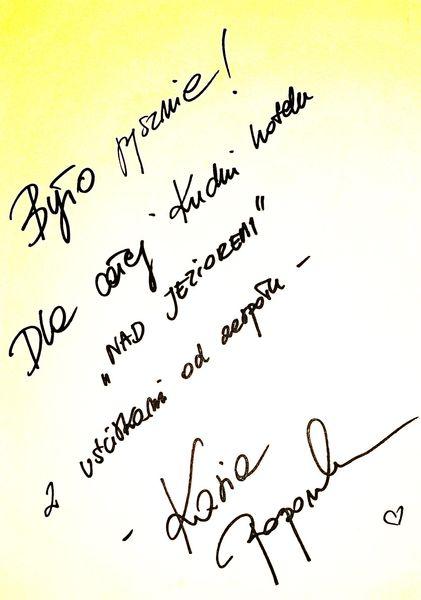 Było pysznie!
Dla całej Kuchni hotelu
"NAD JEZIOREM"
z uściskami od zespołu -
- Kasia
♡